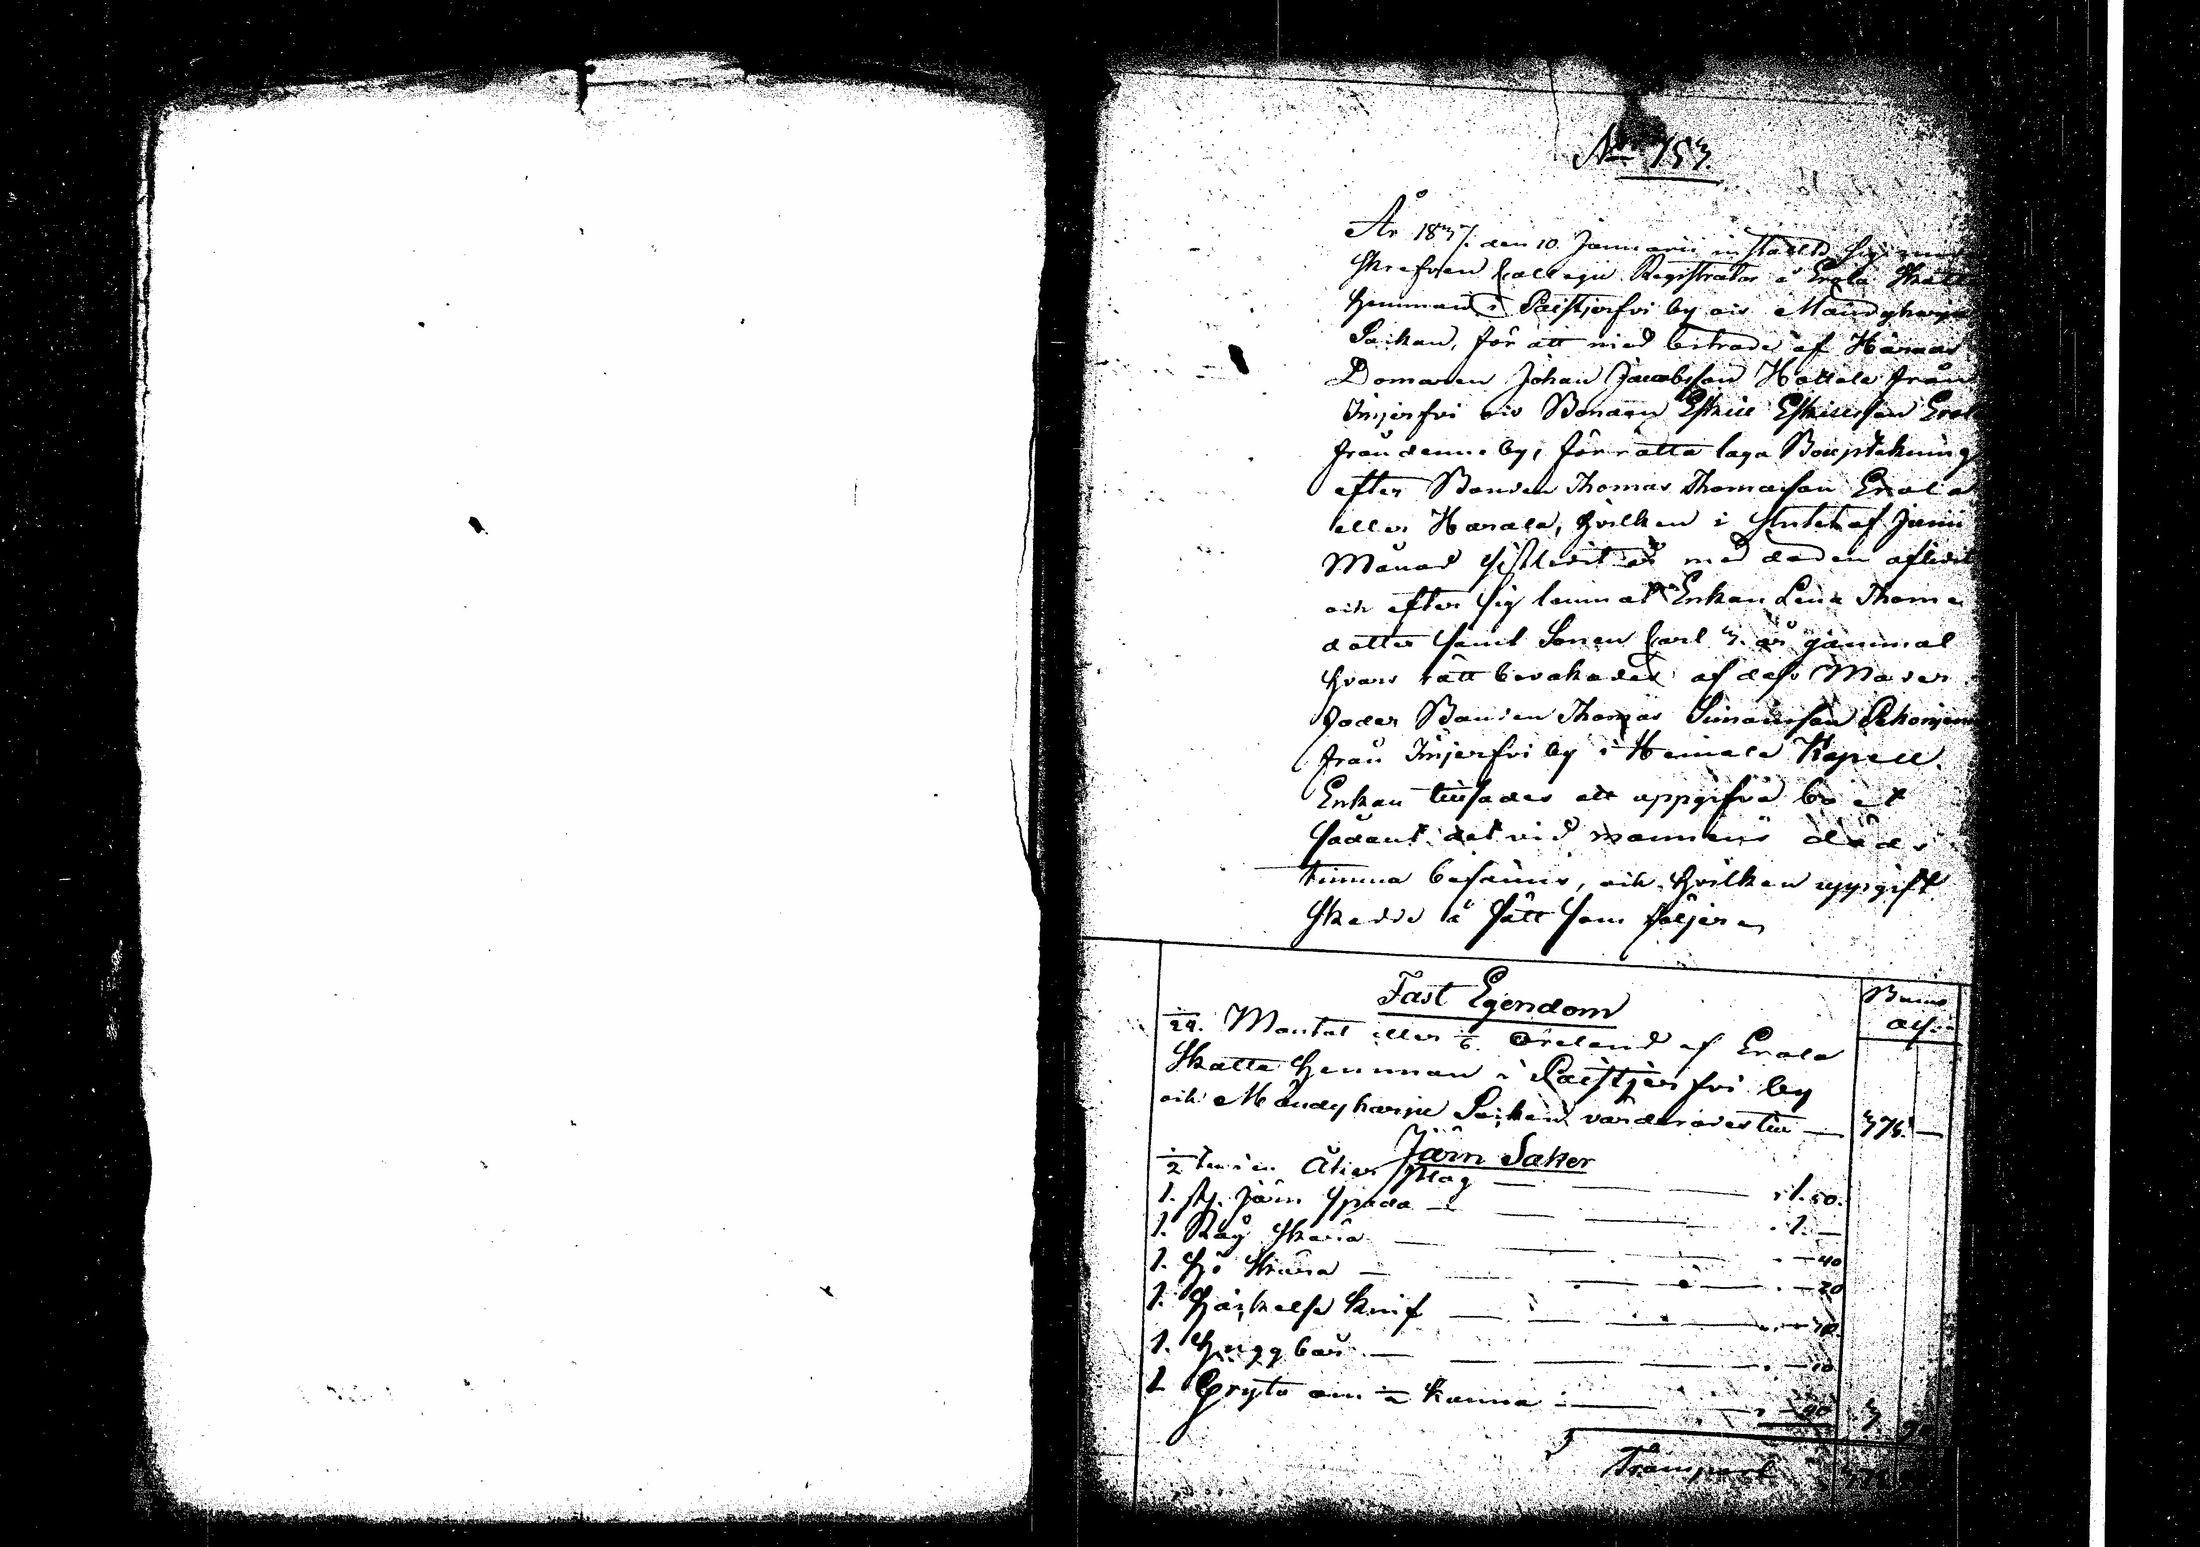 No 753.
År 1837. den 10. Januarii instälde sig under
skrefven Collegii Registrator å Erola Skatte
hemman i Paistjerfvi by och Mändyharju
Sockan, för att med biträde af Härads
Domaren Johan Jacobsson Hottola från
Imjerfvi och Bonden Eskill Eskillsson Erola
från denne by, förrätta laga Bouptekning
efter Bonden Thomas Thomasson Erola
eller Harala, hvilken i slutet af Junii
Månad sistledit år med döden aflidit
och efter sig lemnat Enkan Lena Thomas
dotter samt Sonen Carl 3. år gammal
hvars rätt bevakades af dess Moder
fader Bonden Thomas Simonsson Pekonjemi
från Imjerfvi by i Heinola Kapell.
Enkan tillsades att uppgifva boet
sådant det vid mannens döds
timma befanns, och hvilken uppgift
skedde å sätt som följer
Fast Egendom
Banco
Ass:
1/24. Mantal eller 1/6. Öreland af Erola
Skatte hemman i Paistjerfvi by
och Mändyharju Socken värderades till — 375. —
Järn Saker
1/2 ten i en Åker Plog — — — 1. 50.
1. st. Järn Spada — — — 1. —
1. Råg Skära — — — 40
1. Hö Skära — — — 20
1. Hackelse knif — — — 10.
1. Huggbår — — — 10
1 Gryta om 1/2 Kanna — — 60 3 90
Transport 378